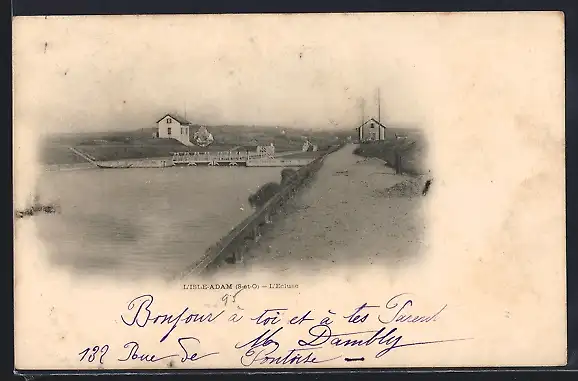 L'ISLE-ADAM (S-et-O) — L'Ecluse
95
Bonjour à toi et à tes Parent
M Dambly
132 Rue de Pontoise —